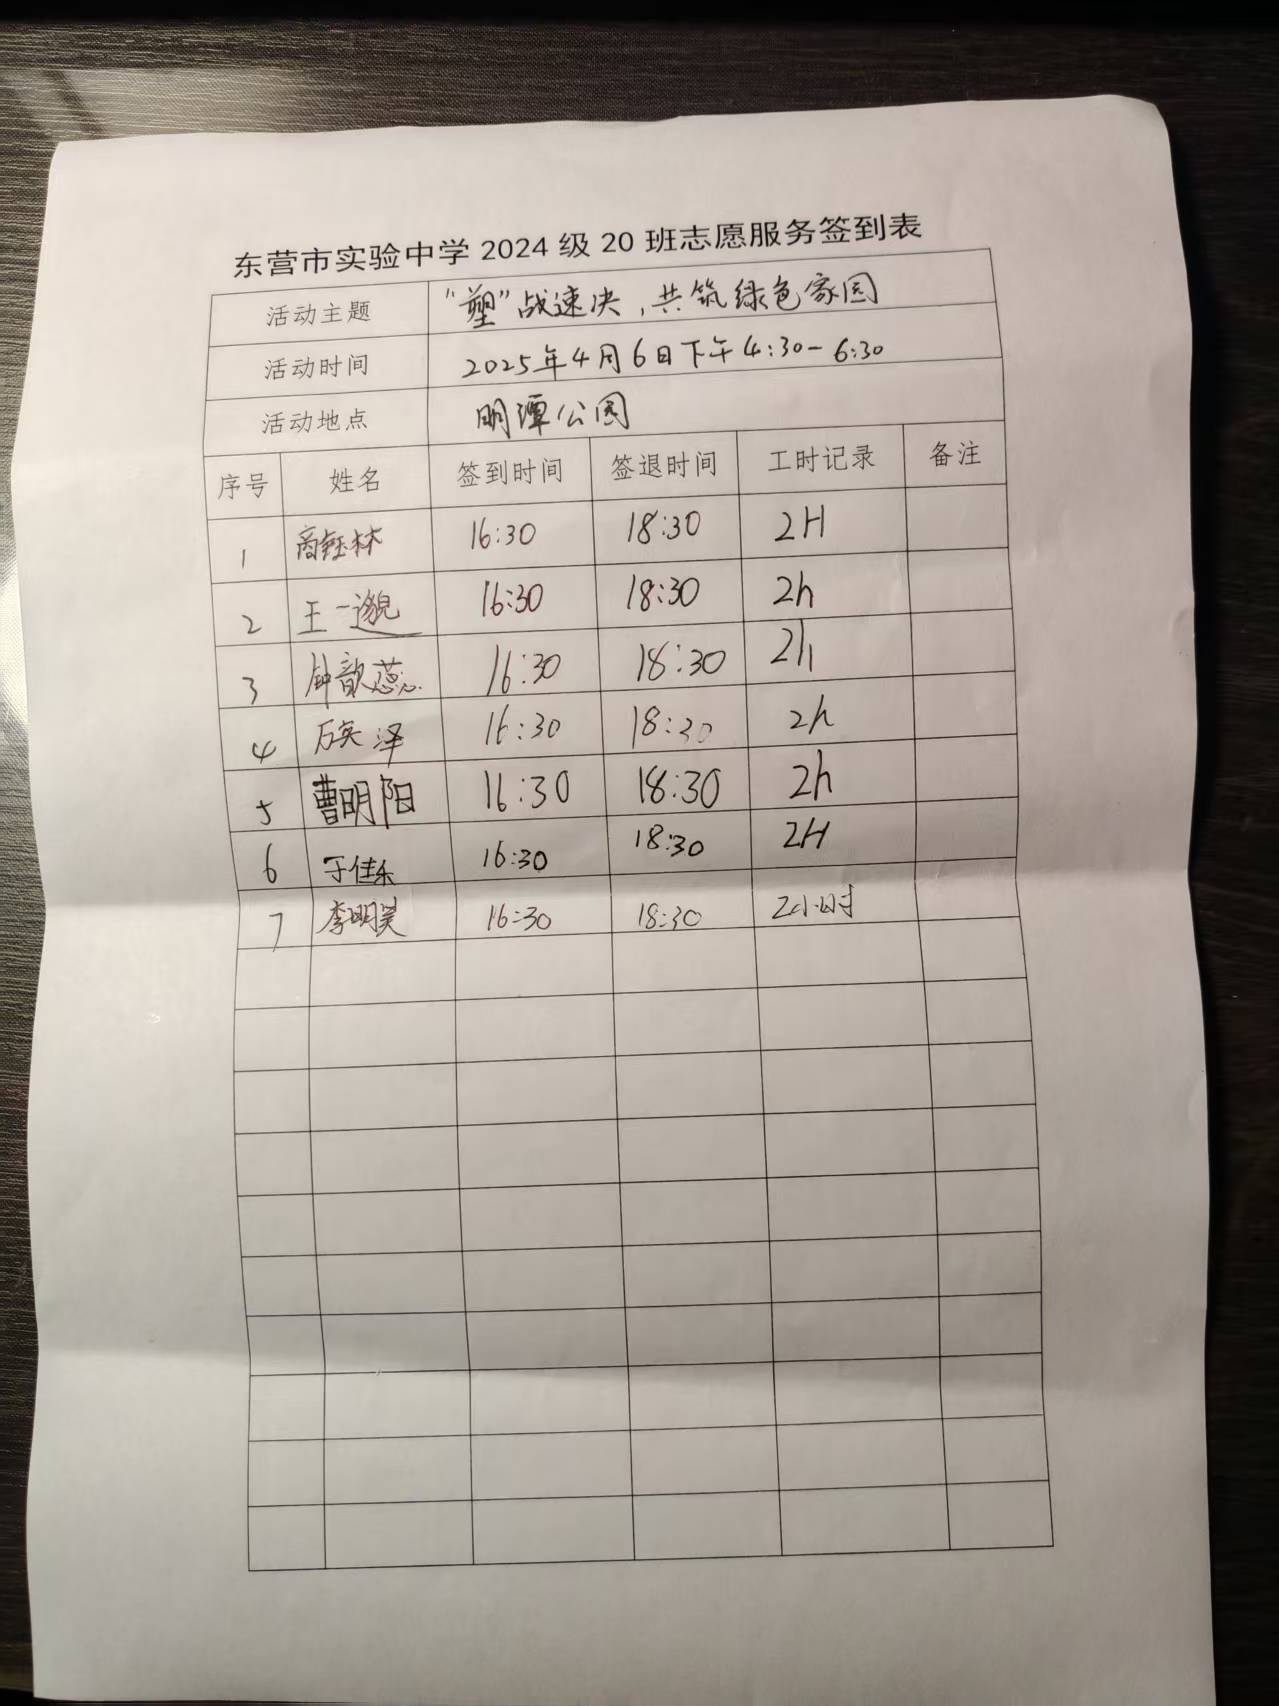 东营市实验中学 2024 级 20 班志愿服务签到表
活动主题 “塑”战速决，共筑绿色家园
活动时间 2025年4月6日下午4:30-6:30
活动地点 明潭公园
序号 姓名 签到时间 签退时间 工时记录 备注
1 商钰林 16:30 18:30 2H
2 王一邈 16:30 18:30 2h
3 钟歆蕊 16:30 18:30 2h
4 万奕泽 16:30 18:30 2h
5 曹明阳 16:30 18:30 2h
6 于佳乐 16:30 18:30 2H
7 李明昊 16:30 18:30 2小时